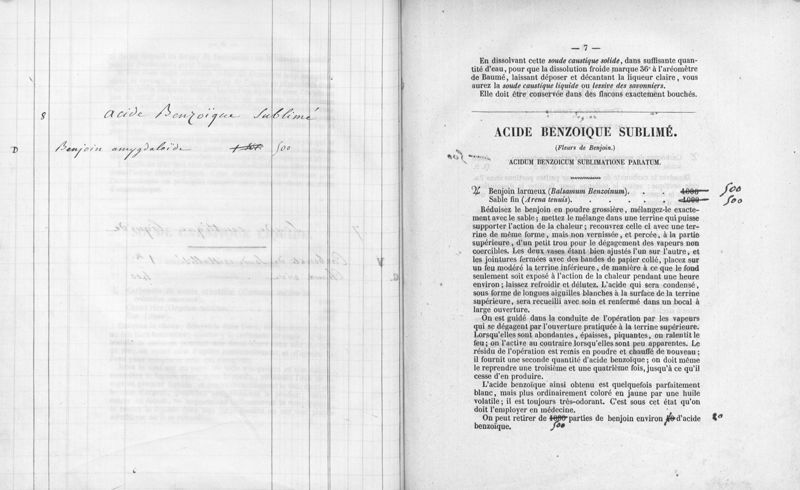 8 Acide Benzoïque Sublimé
D Benjoin amygdaloïde 500
— 7 —
En dissolvant cette soude caustique solide, dans suffisante quan-
tité d'eau, pour que la dissolution froide marque 36° à l'aréomètre
de Baumé, laissant déposer et décantant la liqueur claire, vous
aurez la soude caustique liquide ou lessive des savonniers.
Elle doit être conservée dans des flacons exactement bouchés.
ACIDE BENZOIQUE SUBLIMÉ.
(Fleurs de Benjoin.)
ACIDUM BENZOICUM SUBLIMATIONE PARATUM.
♃ Benjoin larmeux (Balsamum Benzoinum). . . 1000 500
Sable fin (Arena tenuis). . . . . . 1000 500
Réduisez le benjoin en poudre grossière, mélangez-le exacte-
ment avec le sable; mettez le mélange dans une terrine qui puisse
supporter l'action de la chaleur; recouvrez celle ci avec une ter-
rine de même forme, mais non vernissée, et percée, à la partie
supérieure, d'un petit trou pour le dégagement des vapeurs non
coercibles. Les deux vases étant bien ajustés l'un sur l'autre, et
les jointures fermées avec des bandes de papier collé, placez sur
un feu modéré la terrine inférieure, de manière à ce que le fond
seulement soit exposé à l'action de la chaleur pendant une heure
environ; laissez refroidir et délutez. L'acide qui sera condensé,
sous forme de longues aiguilles blanches à la surface de la terrine
supérieure, sera recueilli avec soin et renfermé dans un bocal à
large ouverture.
On est guidé dans la conduite de l'opération par les vapeurs
qui se dégagent par l'ouverture pratiquée à la terrine supérieure.
Lorsqu'elles sont abondantes, épaisses, piquantes, on ralentit le
feu; on l'active au contraire lorsqu'elles sont peu apparentes. Le
résidu de l'opération est remis en poudre et chauffé de nouveau;
il fournit une seconde quantité d'acide benzoïque; on doit même
le reprendre une troisième et une quatrième fois, jusqu'à ce qu'il
cesse d'en produire.
L'acide benzoïque ainsi obtenu est quelquefois parfaitement
blanc, mais plus ordinairement coloré en jaune par une huile
volatile; il est toujours très-odorant. C'est sous cet état qu'on
doit l'employer en médecine.
On peut retirer de 1000 parties de benjoin environ d'acide 20
benzoïque. 500